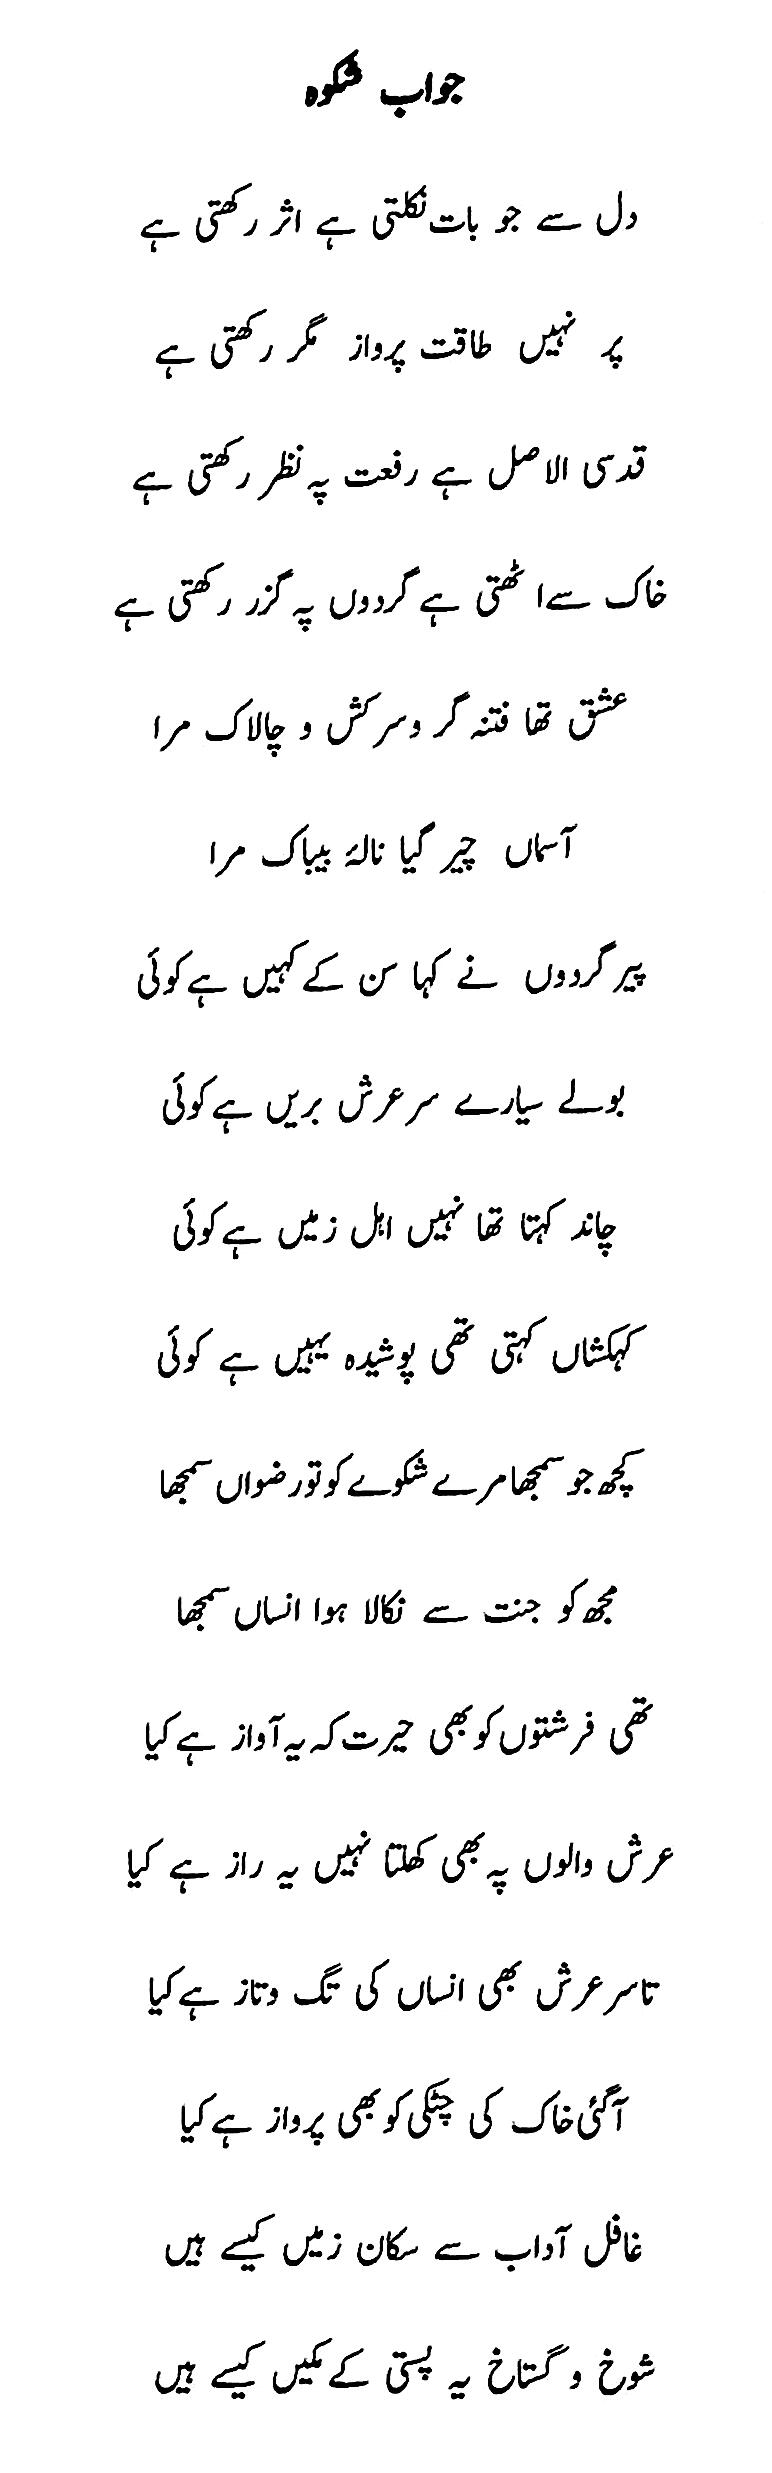 جواب شکوہ
دل سے جو بات نکلتی ہے اثر رکھتی ہے
پر نہیں طاقت پرواز مگر رکھتی ہے
قدسی الاصل ہے رفعت پہ نظر رکھتی ہے
خاک سے اٹھتی ہے گردوں پہ گزر رکھتی ہے
عشق تھا فتنہ گر و سرکش و چالاک مرا
آسماں چیر گیا نالۂ بیباک مرا
پیر گردوں نے کہا سن کے کہیں ہے کوئی
بولے سیارے سر عرش بریں ہے کوئی
چاند کہتا تھا نہیں اہل زمیں ہے کوئی
کہکشاں کہتی تھی پوشیدہ یہیں ہے کوئی
کچھ جو سمجھا مرے شکوے کو تو رضواں سمجھا
مجھ کو جنت سے نکالا ہوا انساں سمجھا
تھی فرشتوں کو بھی حیرت کہ یہ آواز ہے کیا
عرش والوں پہ بھی کھلتا نہیں یہ راز ہے کیا
تا سر عرش بھی انساں کی تگ و تاز ہے کیا
آ گئی خاک کی چٹکی کو بھی پرواز ہے کیا
غافل آداب سے سکان زمیں کیسے ہیں
شوخ و گستاخ یہ پستی کے مکیں کیسے ہیں